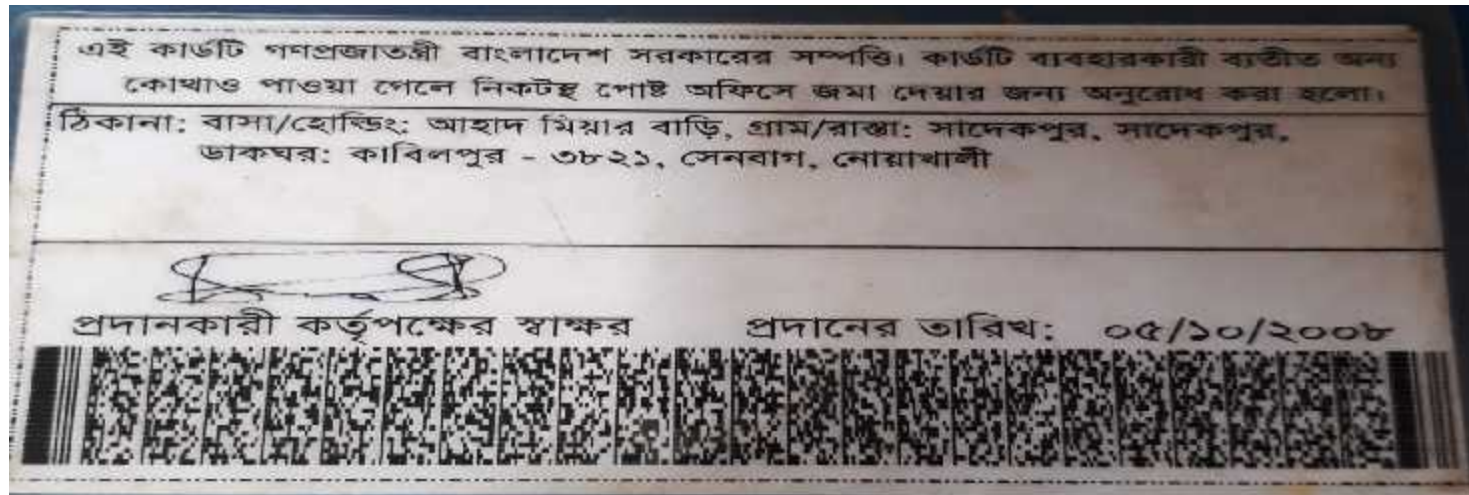 এই কার্ডটি গণপ্রজাতন্ত্রী বাংলাদেশ সরকারের সম্পত্তি। কার্ডটি ব্যবহারকারী ব্যতীত অন্য
কোথাও পাওয়া গেলে নিকটস্থ পোষ্ট অফিসে জমা দেয়ার জন্য অনুরোধ করা হলো।
ঠিকানা: বাসা/হোল্ডিং: আহাদ মিয়ার বাড়ি, গ্রাম/রাস্তা: সাদেকপুর, সাদেকপুর,
ডাকঘর: কাবিলপুর - ৩৮২১, সেনবাগ, নোয়াখালী
প্রদানকারী কর্তৃপক্ষের স্বাক্ষর প্রদানের তারিখ: ০৫/১০/২০০৮